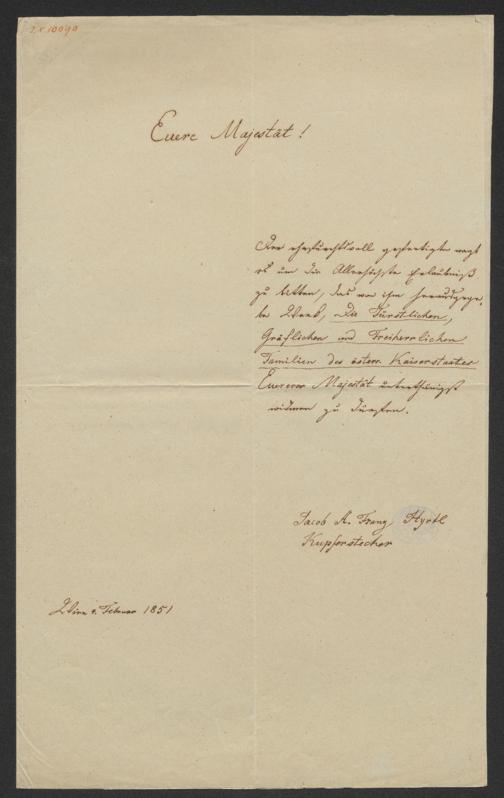 Euere Majestät!
Der ehrfurchtsvoll gefertigte wagt
es um die Allerhöchste Erlaubniß
zu bitten, das von ihm herausgege-
be Werk, Die Fürstlichen,
Gräflichen und Freiherrlichen
Familien des österr. Kaiserstaates
Euerer Majestät unterthänigst
widmen zu dürfen.
Jacob A. Franz Hyrtl
Kupferstecher
Wien Februar 1851